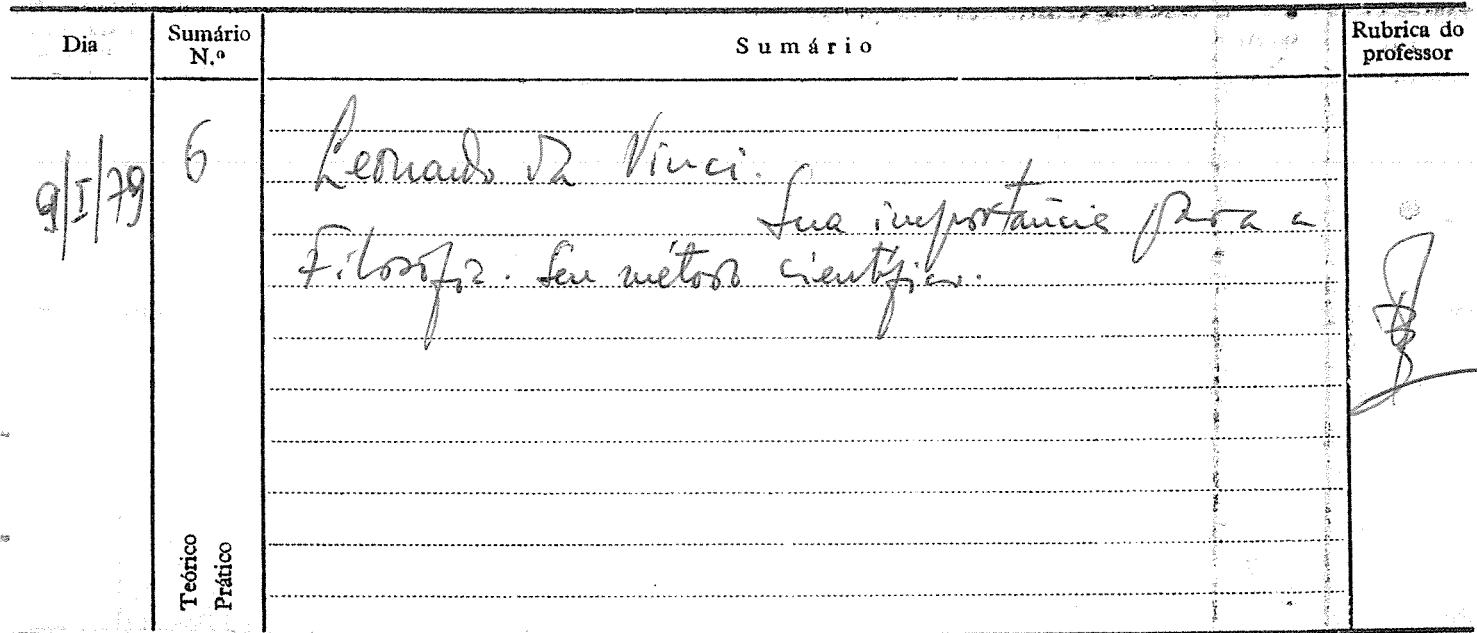 Dia
Sumário N.º
Sumário
Rubrica do professor
9/I/79
6
Leonardo da Vinci.
Sua importância para a
Filosofia. Seu método científico.
Teórico
Prático